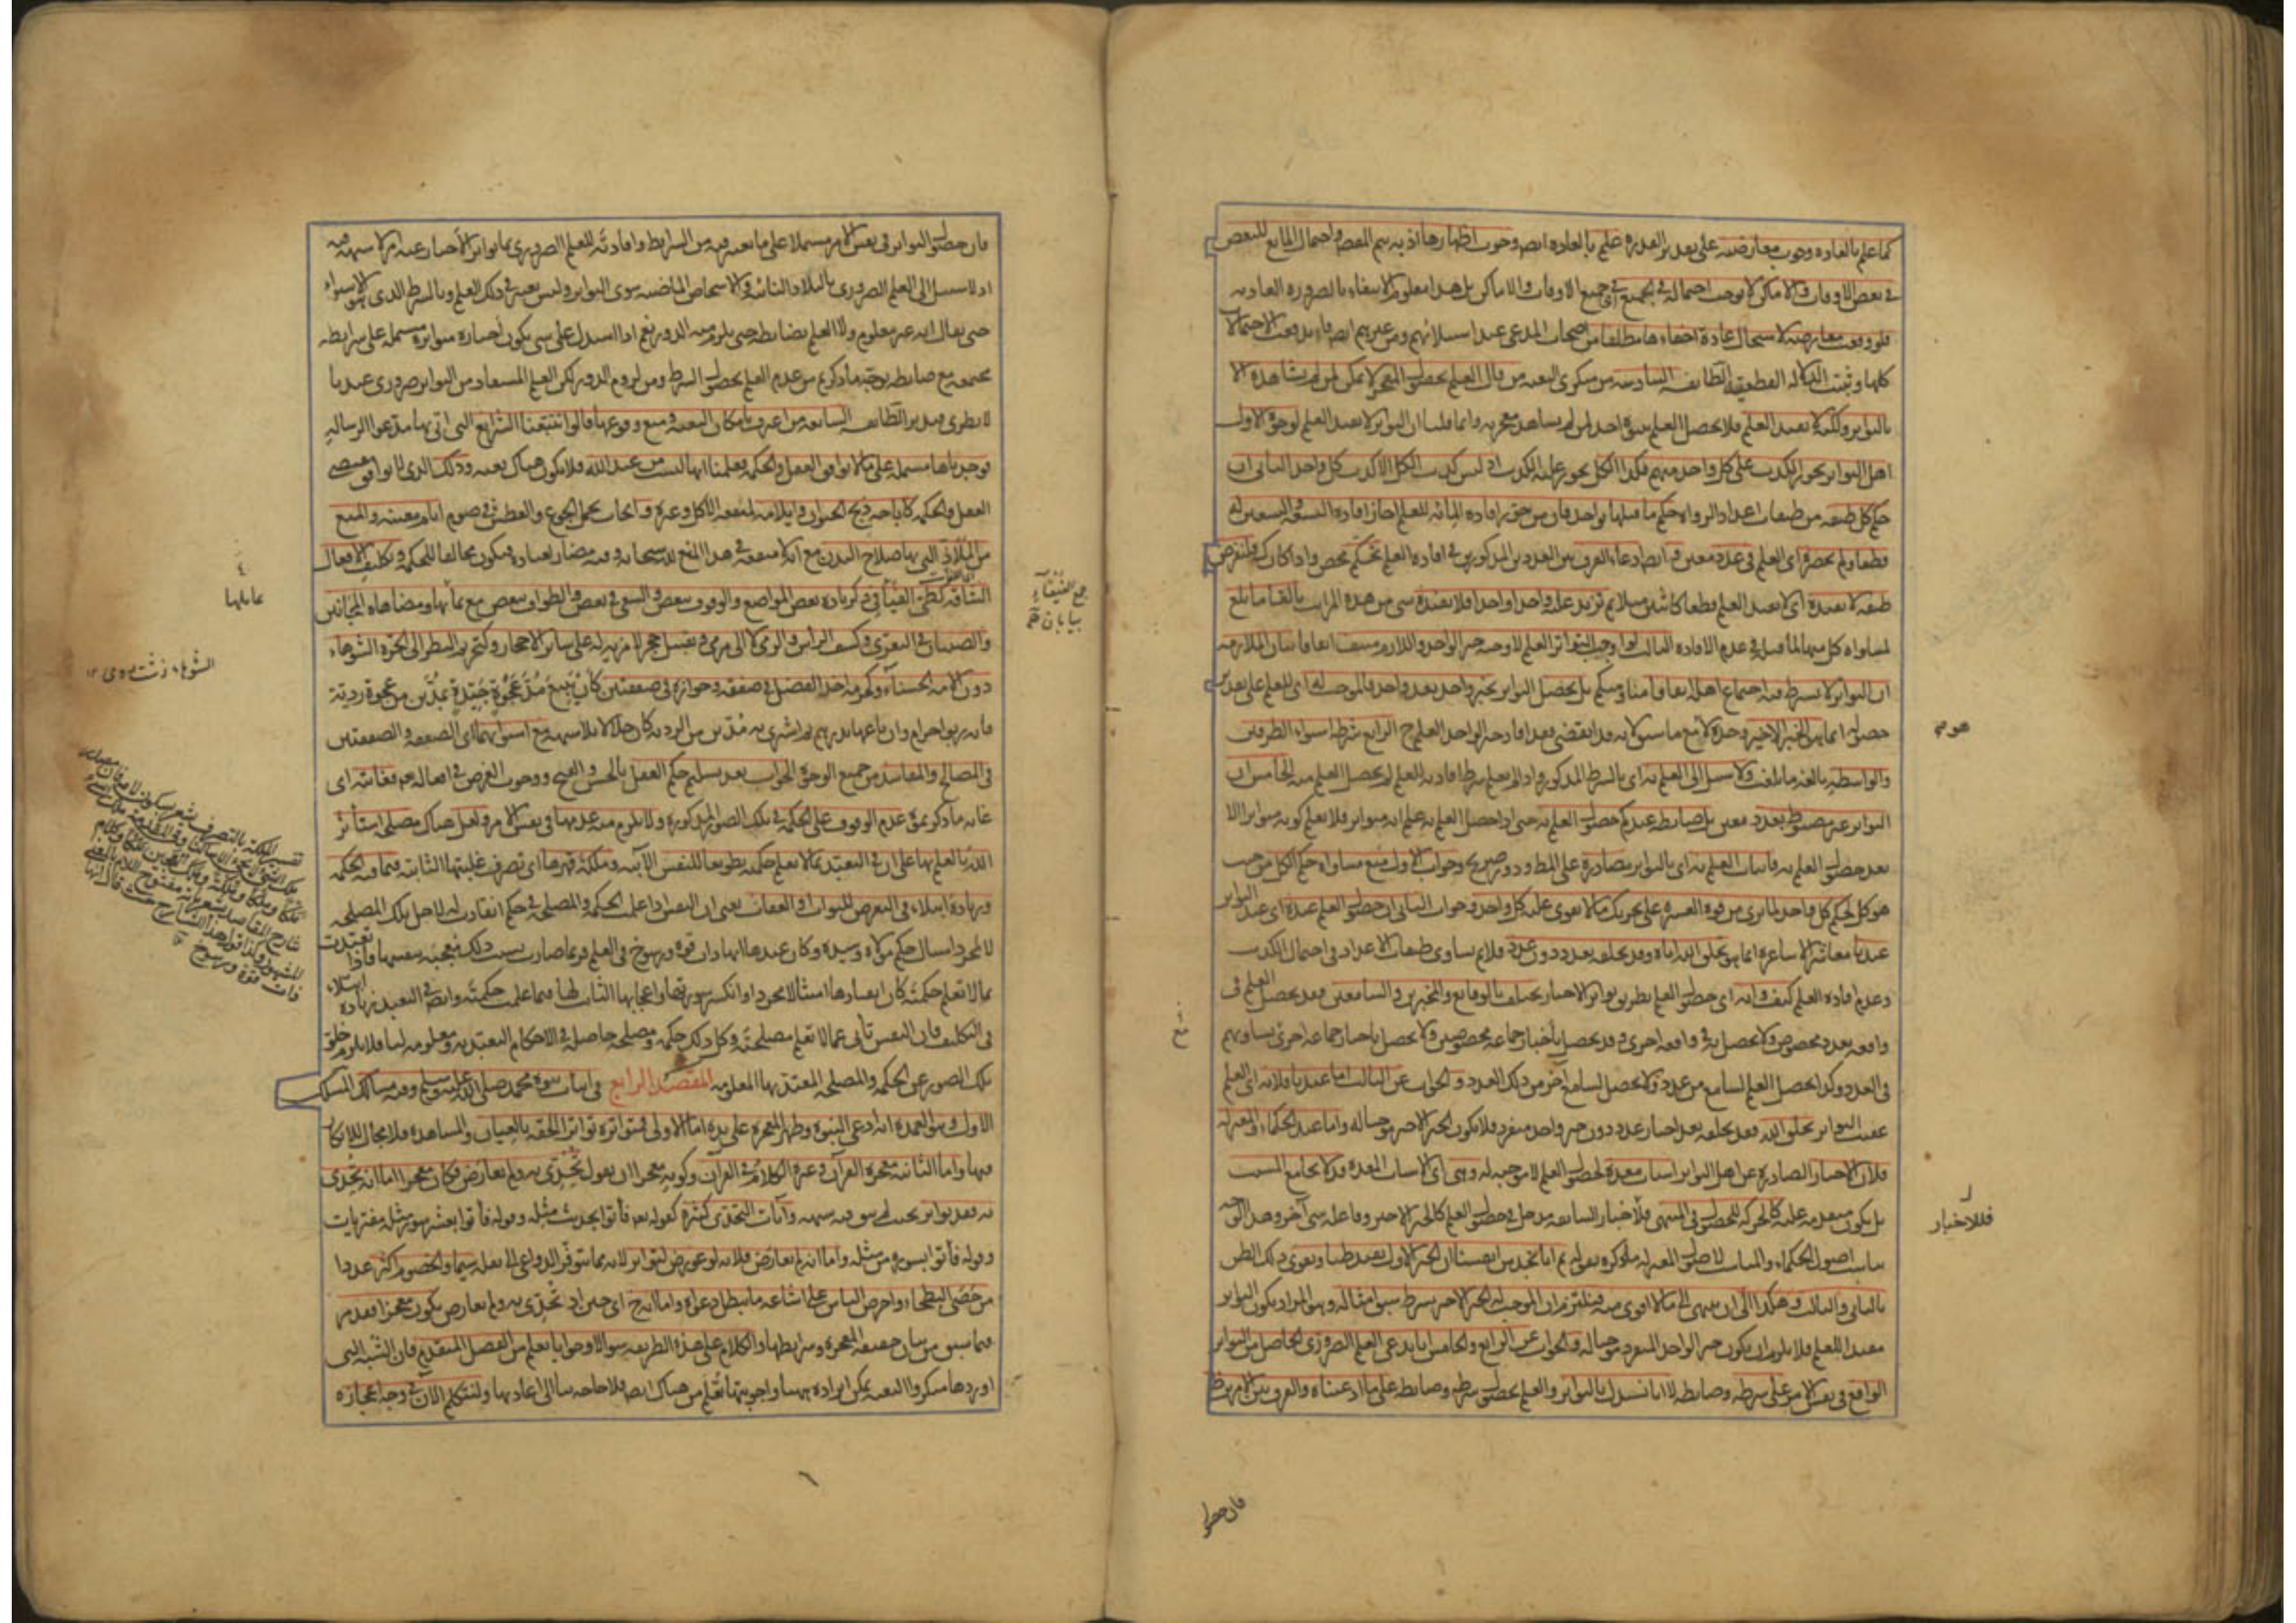 كما علم بالعادة وجوب معارضته على تقدير القدرة علم بالعادة ايضا وجوب اظهارها اذ به يتم المقصود واحتمال المانع للبعض
في بعض الاوقات والاماكن لا يوجب احتماله في الجميع اي جميع الاوقات والاماكن بل هذا معلوم الانتفاء بالضرورة العادية
فلو وقعت معارضته لاستحال عادة اخفاءها مطلقا من اصحاب المدعي عند استيلائهم ومن غيرهم ايضا فاندفعت الاحتمالات
كلها وثبتت الدلالة القطعية الطائفة السادسة من منكري البعثة من قال العلم بحصول المعجز لا يمكن لمن لم يشاهده الا
بالتواتر ولكنه لا يفيد العلم فلا يحصل العلم بنبوة احد لمن لم يشاهد معجزته وانما قلنا ان التواتر لا يفيد العلم لوجوه الاول
اهل التواتر يجوز الكذب على كل واحد منهم فكذا الكل يجوز عليه الكذب اذ ليس كذب الكل الا كذب كل واحد الثاني ان
حكم كل طبقة من طبقات اعداد الرواة حكم ما قبلها بواحد فان من جوز افادة المائة للعلم اجاز افادة التسعة والتسعين له
قطعا ولم يحصره اي العلم في عدد معين وايضا ادعاء الفرق بين العددين المذكورين في افادة العلم تحكم محض واذا كان كذلك فلنفرض
طبقة لا تفيده اي لا تفيد العلم قطعا كاثنين مثلا ثم نزيد عليه واحدا واحدا فلا يفيده شيء من هذه المراتب بالغا ما بلغ
لمساواة كل منها لما قبله في عدم الافادة الثالث لو اوجب التواتر العلم لاوجبه خبر الواحد واللازم منتف اتفاقا بيان الملازمة
ان التواتر لا يشترط فيه اجتماع اهله اتفاقا منا ومنكم بل يحصل التواتر بخبر واحد بعد واحد فالموجب له اي للعلم على تقدير
حصوله انما هو الخبر الاخير وحده لا مع ما سبق لانه قد انقضى فقد افاد خبر الواحد العلم الرابع شرطه استواء الطرفين
والواسطة بالغة ما بلغت ولا سبيل الى العلم به اي بالشرط المذكور واذا لم يعلم شرط افادته للعلم لم يحصل العلم منه الخامس ان
التواتر غير مضبوط بعدد معين بل ضابطه عندكم حصول العلم به حتى اذا حصل العلم به علم انه متواتر فلا يعلم كونه متواترا الا
بعد حصول العلم به فاثبات العلم به اي بالتواتر مصادرة على المط ودور صريح وجواب الاول منع مساواة حكم الكل من حيث
هو كل لحكم كل واحد لما نرى من قوة العشرة على تحريك ما لا يقوى عليه كل واحد وجواب الثاني ان حصول العلم عنده اي عند التواتر
عندنا معاشر الاشاعرة انما هو بخلق الله اياه وقد يخلقه بعدد دون عدد فلا يم تساوي طبقات الاعداد في احتمال الكذب
وعدم افادة العلم كيف وانه اي حصول العلم بطريق تواتر الاخبار يختلف بالوقائع والمخبرين والسامعين فقد يحصل العلم في
واقعة بعدد مخصوص ولا يحصل به في واقعة اخرى وقد يحصل باخبار جماعة مخصوصين ولا يحصل باخبار جماعة اخرى تساويهم
في العدد وكذا يحصل العلم لسامع من عدد ولا يحصل لسامع آخر من ذلك العدد والجواب عن الثالث اما عندنا فلانه اي العلم
عقيب التواتر بخلق الله فقد يخلقه بعد اخبار عدد دون خبر واحد منفرد فلا يكون الخبر الاخير موجبا له واما عند الحكماء والمعتزلة
فلان الاخبار الصادرة عن اهل التواتر اسباب معدة لحصول العلم لا موجبة له وهي اي الاسباب المعدة قد لا تجامع المسبب
بل يكون متقدمة عليه كالحركة للحصول في المنتهى فللاخبار السابقة مدخل في حصول العلم كالخبر الاخير وفاعله شيء آخر وهذا الوجه
يناسب اصول الحكماء والمناسب لاصول المعتزلة ما ذكره بقوله ثم انا نجد من انفسنا ان الخبر الاول يفيد ظنا ويقوى ذلك الظن
بالثاني والثالث وهكذا الى ان ينتهي الى ما لا اقوى منه فيلزم ان الموجب له الخبر الاخير بشرط سبق امثاله وهو المراد بكون التواتر
مفيدا للعلم فلا يلزم ان يكون خبر الواحد المنفرد موجبا له والجواب عن الرابع والخامس انا ندعي العلم الضروري الحاصل من التواتر
الواقع في نفس الامر على شرطه وضابطه لا انا نستدل بالتواتر والعلم بحصول شرطه وضابطه على ما ادعيناه والفرق بين الامرين ظ
فان حصول
هو مع
فللاخبار
فان حصول التواتر في نفس الامر مشتملا على ما يعتبر فيه من الشرايط وافادته للعلم الضروري بما تواتر الاخبار عنه امر لا شبهة فيه
اذ لا سبيل الى العلم الضروري بالبلاد النائية والاشخاص الماضية سوى التواتر وليس يعتبر في ذلك العلم بالشرط الذي هو الاستواء
حتى يقال انه غير معلوم ولا العلم بضابطه حتى يلزم منه الدور نعم اذا استدل على شيء بكون اخباره متواترة مشتملة على شرايطه
مجتمعة مع ضابطه توجه ما ذكرتم من عدم العلم بحصول الشرط ومن لزوم الدور لكن العلم المستفاد من التواتر ضروري عندنا
لا نظري فتدبر الطائفة السابعة من اعترف بامكان البعثة ومنع وقوعها قالوا تتبعنا الشرايع التي اتى بها مدعوا الرسالة
فوجدناها مشتملة على ما لا يوافق العقل والحكمة فعلمنا انها ليست من عند الله فلا يكون هناك بعثة وذلك الذي لا يوافق مقتضى
العقل والحكمة كاباحة ذبح الحيوان وايلامه لمنفعة الاكل وغيره وايجاب تحمل الجوع والعطش في صوم ايام معينة والمنع
من الملاذ التي بها صلاح البدن مع انه لا منفعة في هذا المنع لله سبحانه وفيه مضار لعباده فيكون مخالفا للحكمة وتكليف الافعال
الشاقة كطي الفيافي في ذكر زيارة بعض المواضع والوقوف ببعض والسعي في بعض والطواف ببعض مع تماثلها ومضاهاة المجانين
والصبيان في التعري وكشف الرأس والرمي لا الى مرمى وتقبيل حجر لا مزية له على سائر الاحجار وكتحريم النظر الى الحرة الشوهاء
دون الامة الحسناء وكحرمة اخذ الفضل في صفقة وجوازه في صفقتين كان يبيع مد عجوة جيدة بمدين من عجوة ردية
فانه ربوا حرام وان باعها بدرهم ثم اشترى به مدين من الردية كان حلالا بلا شبهة مع استوائهما اي الصفقة والصفقتين
في المصالح والمفاسد من جميع الوجوه الجواب بعد تسليم حكم العقل بالحسن والقبح ووجوب الغرض في افعاله تعالى فغايته اي
غاية ما ذكرتموه عدم الوقوف على الحكمة في تلك الصور المذكورة ولا يلزم منه عدمها في نفس الامر ولعل هناك مصلحة استأثر
الله بالعلم بها على ان في التعبد بما لا يعلم حكمته تطويعا للنفس الآبية وملكة قهرها اي تصرف غلبتها الثابتة فيما فيه الحكمة
وزيادة ابتلاء في التعرض للثواب والعقاب يعني ان النفس اذا علمت الحكمة والمصلحة في حكم انقادت له لاجل تلك المصلحة
لا لمجرد امتثال حكم مولاه وسيده وكان عندها انها ذات قوة ورسوخ في العلم وربما صارت بسبب ذلك معجبة بنفسها فاذا تعبدت
بما لا تعلم حكمته كان انقيادها امتثالا مجردا وانكسر سورتها واعجابها الثابت لها فيما علمت حكمته وايضا في التعبد زيادة ابتلاء
في التكليف فان النفس تأبى عما لا تعلم مصلحته وكل ذلك حكمة ومصلحة حاصلة في الاحكام التعبدية ومعلومة لنا فلا يلزم خلو
تلك الصور عن الحكمة والمصلحة المعتد بها المعلومة المقصد الرابع في اثبات نبوة محمد صلى الله عليه وسلم وفيه مسالك المسلك
الاول وهو العمدة انه ادعى النبوة وظهر المعجزة على يده اما الاولى فمتواترة تواترا الحقه بالعيان والمشاهدة فلا مجال للانكار
فيها واما الثانية فمعجزة القرآن وغيره الكلام في القرآن وكونه معجزا ان نقول تحدى به ولم يعارض فكان معجزا اما انه تحدى
به فقد تواتر بحيث لم يبق فيه شبهة وآيات التحدي كثيرة كقوله تع فأتوا بحديث مثله وقوله فأتوا بعشر سور مثله مفتريات
وقوله فأتوا بسورة من مثله واما انه لم يعارض فلانه لو عورض لتواتر لانه مما يتوفر الدواعي الى نقله سيما والخصوم اكثر عددا
من حصى البطحاء واحرص الناس على اشاعة ما يبطل دعواه واما انه ح اي حين اذ تحدى به ولم يعارض يكون معجزا فقد مر
فيما سبق من بيان حقيقة المعجزة وشرايطها والكلام على هذه الطريقة سؤالا وجوابا يعلم من الفصل المتقدم فان الشبه التي
اوردها منكروا البعثة يمكن ايراده ههنا واجوبتها تعلم من هناك ايضا فلا حاجة بنا الى اعادتها ولنتكلم الآن في وجه اعجازه
جمع الفيفاء
بيابان
الشوهاء زشت روى ١٢
ذات قوة ورسوخ